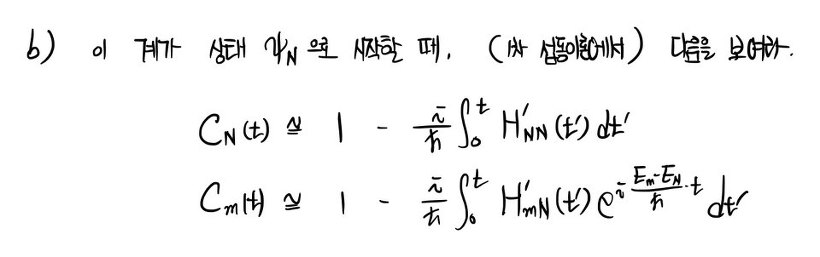 b) 이 계가 상태 ψ_N 으로 시작할 때, (1차 섭동이론에서) 다음을 보여라.
C_N(t) ≅ 1 - i/ħ ∫₀ᵗ H'_NN(t') dt'
C_m(t) ≅ 1 - i/ħ ∫₀ᵗ H'_mN(t') e^{i (E_m-E_N)/ħ · t} dt'